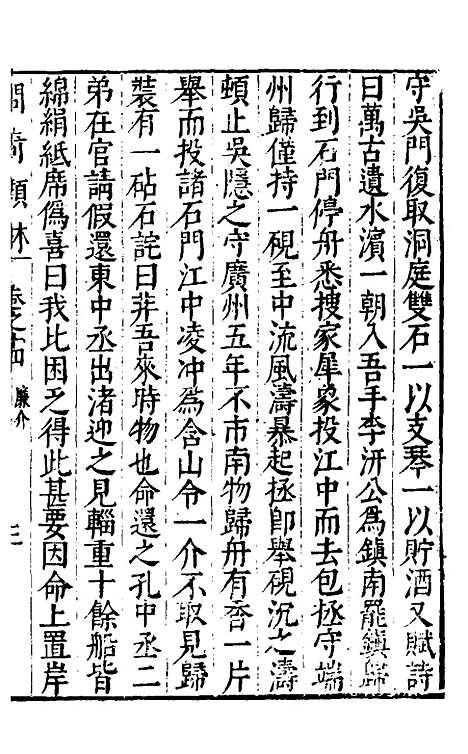 守吳門復取洞庭雙石一以支琴一以貯酒又賦詩
曰萬古遺水濱一朝入吾手李汧公爲鎮南罷鎮歸
行到石門停舟悉搜家犀象投江中而去包拯守端
州歸僅持一硯至中流風濤暴起拯卽舉硯沉之濤
頓止吳隱之守廣州五年不市南物歸舟有香一片
舉而投諸石門江中凌冲爲含山令一介不取見歸
裝有一砧石詫曰非吾來時物也命還之孔中丞二
弟在官請假還東中丞出渚迎之見輜重十餘船皆
綿絹紙席僞喜曰我比困乏得此甚要因命上置岸
問奇類林 卷之十四 廉介 三